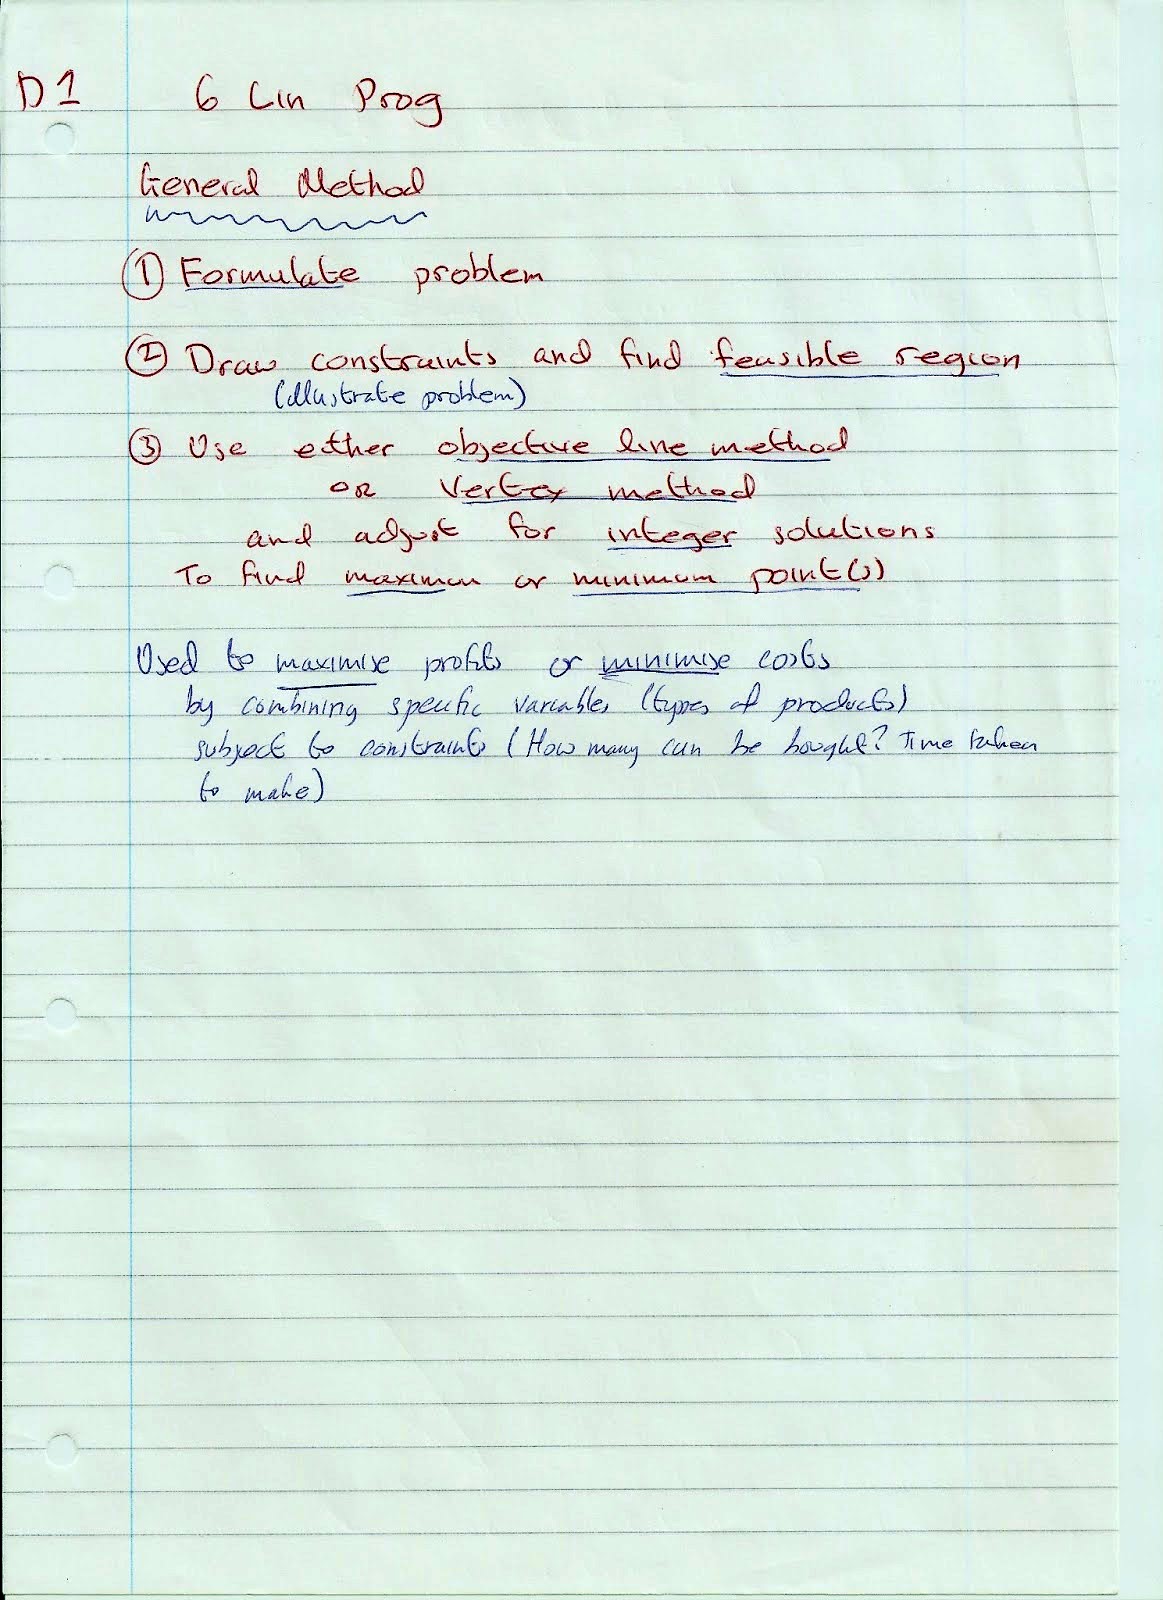 D1 6 Lin Prog
General Method
① Formulate problem
② Draw constraints and find feasible region
(illustrate problem)
③ Use either objective line method
OR Vertex method
and adjust for integer solutions
To find maximum or minimum point(s)
Used to maximise profits or minimise costs
by combining specific variables (types of products)
subject to constraints (How many can be bought? Time taken
to make)